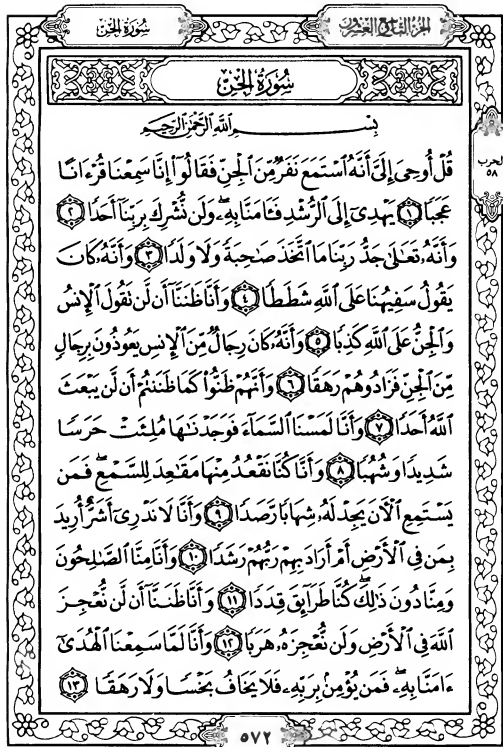 سُورَةُ الجِنِّ
الجُزْءُ التَّاسِعُ وَالعِشْرُونَ
سُورَةُ الجِنِّ
بِسْمِ ٱللَّهِ ٱلرَّحْمَٰنِ ٱلرَّحِيمِ
قُلْ أُوحِىَ إِلَىَّ أَنَّهُ ٱسْتَمَعَ نَفَرٌ مِّنَ ٱلْجِنِّ فَقَالُوٓا۟ إِنَّا سَمِعْنَا قُرْءَانًا
عَجَبًا ١ يَهْدِىٓ إِلَى ٱلرُّشْدِ فَـَٔامَنَّا بِهِۦ وَلَن نُّشْرِكَ بِرَبِّنَآ أَحَدًا ٢
وَأَنَّهُۥ تَعَٰلَىٰ جَدُّ رَبِّنَا مَا ٱتَّخَذَ صَٰحِبَةً وَلَا وَلَدًا ٣ وَأَنَّهُۥ كَانَ
يَقُولُ سَفِيهُنَا عَلَى ٱللَّهِ شَطَطًا ٤ وَأَنَّا ظَنَنَّآ أَن لَّن تَقُولَ ٱلْإِنسُ
وَٱلْجِنُّ عَلَى ٱللَّهِ كَذِبًا ٥ وَأَنَّهُۥ كَانَ رِجَالٌ مِّنَ ٱلْإِنسِ يَعُوذُونَ بِرِجَالٍ
مِّنَ ٱلْجِنِّ فَزَادُوهُمْ رَهَقًا ٦ وَأَنَّهُمْ ظَنُّوا۟ كَمَا ظَنَنتُمْ أَن لَّن يَبْعَثَ
ٱللَّهُ أَحَدًا ٧ وَأَنَّا لَمَسْنَا ٱلسَّمَآءَ فَوَجَدْنَٰهَا مُلِئَتْ حَرَسًا
شَدِيدًا وَشُهُبًا ٨ وَأَنَّا كُنَّا نَقْعُدُ مِنْهَا مَقَٰعِدَ لِلسَّمْعِ فَمَن
يَسْتَمِعِ ٱلْءَانَ يَجِدْ لَهُۥ شِهَابًا رَّصَدًا ٩ وَأَنَّا لَا نَدْرِىٓ أَشَرٌّ أُرِيدَ
بِمَن فِى ٱلْأَرْضِ أَمْ أَرَادَ بِهِمْ رَبُّهُمْ رَشَدًا ١٠ وَأَنَّا مِنَّا ٱلصَّٰلِحُونَ
وَمِنَّا دُونَ ذَٰلِكَ كُنَّا طَرَآئِقَ قِدَدًا ١١ وَأَنَّا ظَنَنَّآ أَن لَّن نُّعْجِزَ
ٱللَّهَ فِى ٱلْأَرْضِ وَلَن نُّعْجِزَهُۥ هَرَبًا ١٢ وَأَنَّا لَمَّا سَمِعْنَا ٱلْهُدَىٰٓ
ءَامَنَّا بِهِۦ فَمَن يُؤْمِنۢ بِرَبِّهِۦ فَلَا يَخَافُ بَخْسًا وَلَا رَهَقًا ١٣
الحزب
٥٨
٥٧٢